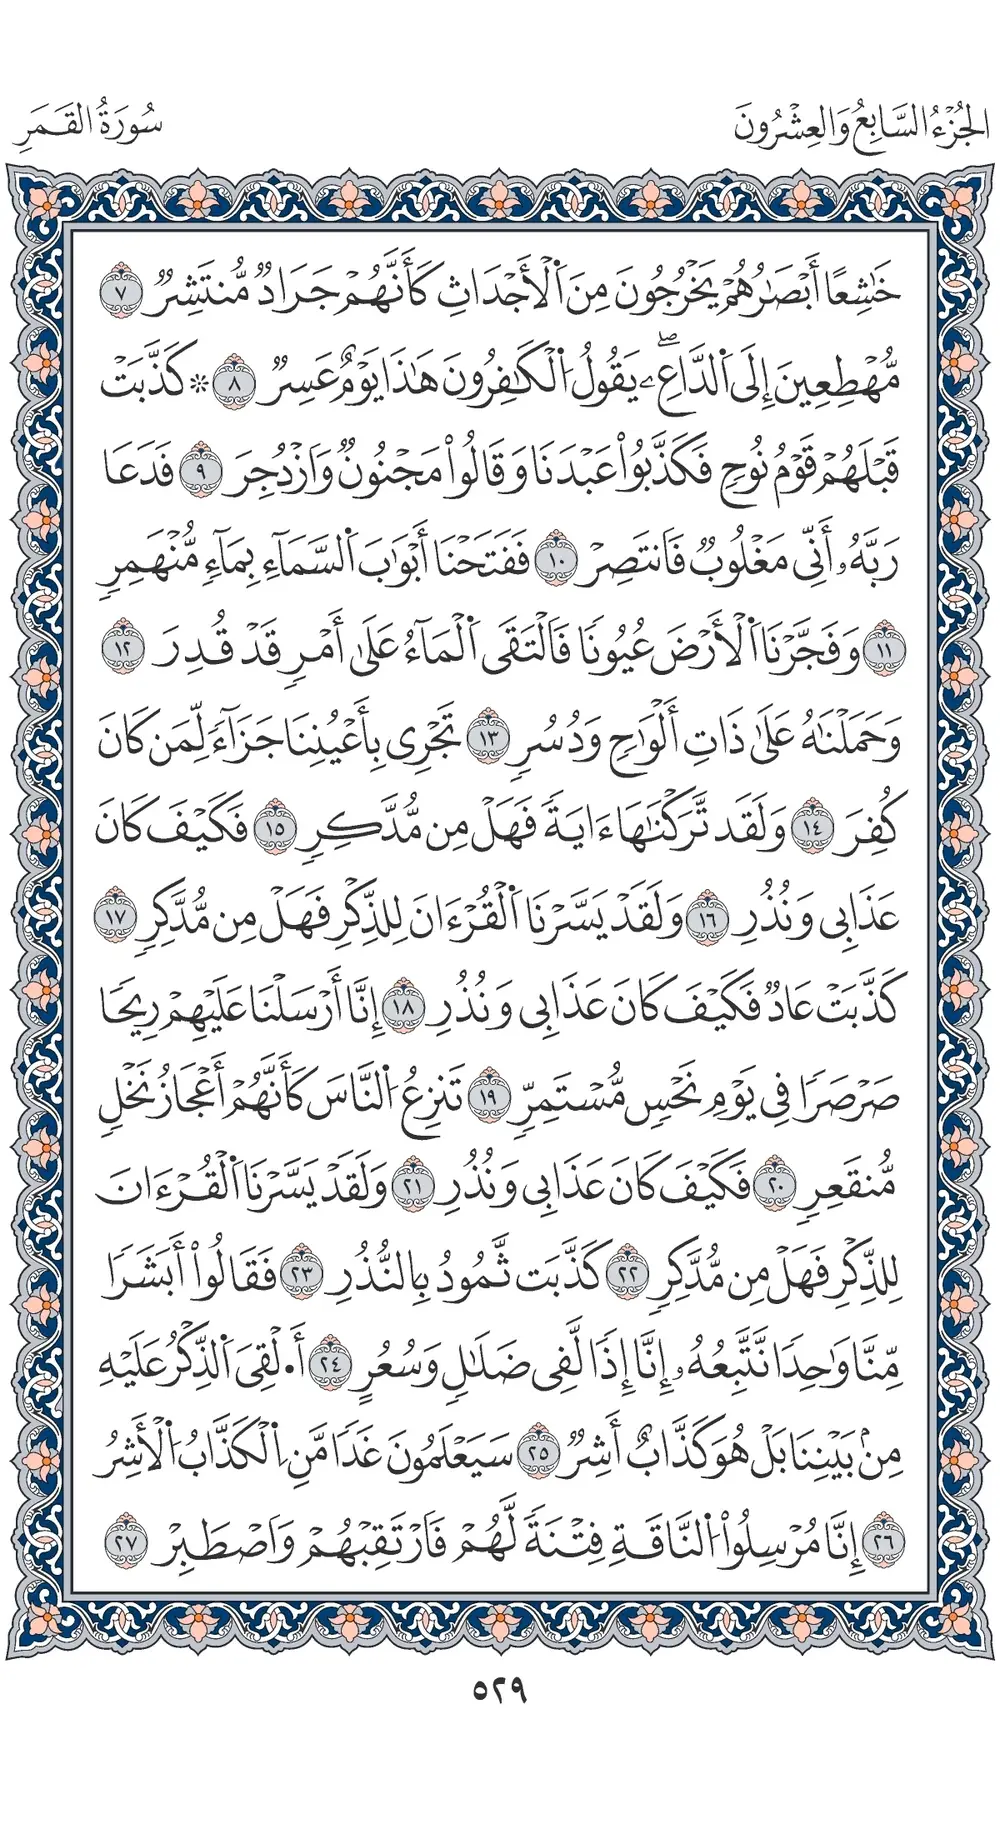 الجُزْءُ السَّابِعُ وَالعِشْرُونَ
سُورَةُ القَمَرِ
خَٰشِعًا أَبْصَٰرُهُمْ يَخْرُجُونَ مِنَ ٱلْأَجْدَاثِ كَأَنَّهُمْ جَرَادٌ مُّنتَشِرٌ ٧
مُّهْطِعِينَ إِلَى ٱلدَّاعِۦۖ يَقُولُ ٱلْكَٰفِرُونَ هَٰذَا يَوْمٌ عَسِرٌ ٨ * كَذَّبَتْ
قَبْلَهُمْ قَوْمُ نُوحٍ فَكَذَّبُواْ عَبْدَنَا وَقَالُواْ مَجْنُونٌ وَازْدُجِرَ ٩ فَدَعَا
رَبَّهُۥ أَنِّى مَغْلُوبٌ فَانتَصِرْ ١٠ فَفَتَحْنَا أَبْوَٰبَ ٱلسَّمَآءِ بِمَآءٍ مُّنْهَمِرٍ
١١ وَفَجَّرْنَا ٱلْأَرْضَ عُيُونًا فَالْتَقَى ٱلْمَآءُ عَلَىٰ أَمْرٍ قَدْ قُدِرَ ١٢
وَحَمَلْنَٰهُ عَلَىٰ ذَاتِ أَلْوَٰحٍ وَدُسُرٍ ١٣ تَجْرِى بِأَعْيُنِنَا جَزَآءً لِّمَن كَانَ
كُفِرَ ١٤ وَلَقَد تَّرَكْنَٰهَا ءَايَةً فَهَلْ مِن مُّدَّكِرٍ ١٥ فَكَيْفَ كَانَ
عَذَابِى وَنُذُرِ ١٦ وَلَقَدْ يَسَّرْنَا ٱلْقُرْءَانَ لِلذِّكْرِ فَهَلْ مِن مُّدَّكِرٍ ١٧
كَذَّبَتْ عَادٌ فَكَيْفَ كَانَ عَذَابِى وَنُذُرِ ١٨ إِنَّا أَرْسَلْنَا عَلَيْهِمْ رِيحًا
صَرْصَرًا فِى يَوْمِ نَحْسٍ مُّسْتَمِرٍّ ١٩ تَنزِعُ ٱلنَّاسَ كَأَنَّهُمْ أَعْجَازُ نَخْلٍ
مُّنقَعِرٍ ٢٠ فَكَيْفَ كَانَ عَذَابِى وَنُذُرِ ٢١ وَلَقَدْ يَسَّرْنَا ٱلْقُرْءَانَ
لِلذِّكْرِ فَهَلْ مِن مُّدَّكِرٍ ٢٢ كَذَّبَت ثَّمُودُ بِالنُّذُرِ ٢٣ فَقَالُواْ أَبَشَرًا
مِّنَّا وَٰحِدًا نَّتَّبِعُهُۥ إِنَّا إِذًا لَّفِى ضَلَٰلٍ وَسُعُرٍ ٢٤ أَ.لْقِىَ ٱلذِّكْرُ عَلَيْهِ
مِنۢ بَيْنِنَا بَلْ هُوَ كَذَّابٌ أَشِرٌ ٢٥ سَيَعْلَمُونَ غَدًا مَّنِ ٱلْكَذَّابُ ٱلْأَشِرُ
٢٦ إِنَّا مُرْسِلُواْ ٱلنَّاقَةِ فِتْنَةً لَّهُمْ فَارْتَقِبْهُمْ وَاصْطَبِرْ ٢٧
٥٢٩